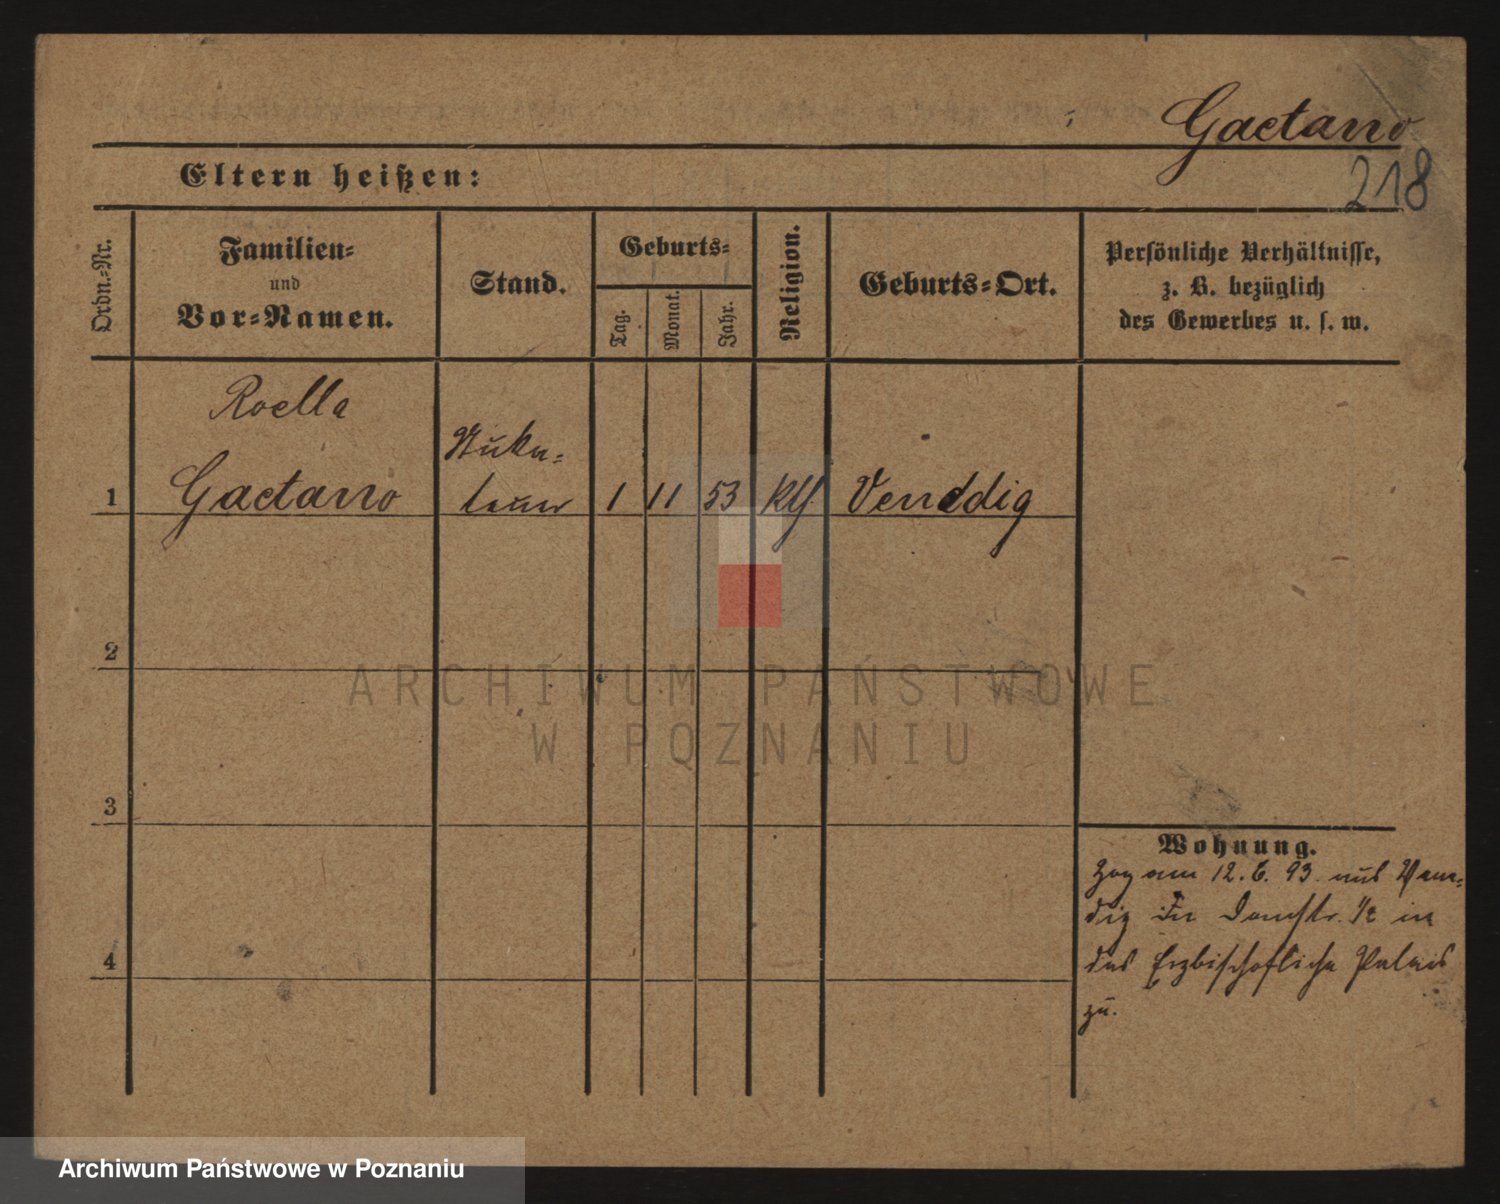 Gaetano
218
Eltern heißen:
Ordn.=Nr.
Familien=
und
Vor=Namen.
Stand.
Geburts=
Tag.
Monat.
Jahr.
Religion.
Geburts=Ort.
Persönliche Verhältnisse,
z. B. bezüglich
des Gewerbes u. s. w.
Roella
Stuka=
teur
1 Gaetano 1 11 53 kth Venedig
2
3
4
Wohnung.
Zog am 12.6.93. aus Vene=
dig Domstr. 1/2 in
das Erzbischofliche Palais
zu.
ARCHIWUM PAŃSTWOWE
W POZNANIU
Archiwum Państwowe w Poznaniu